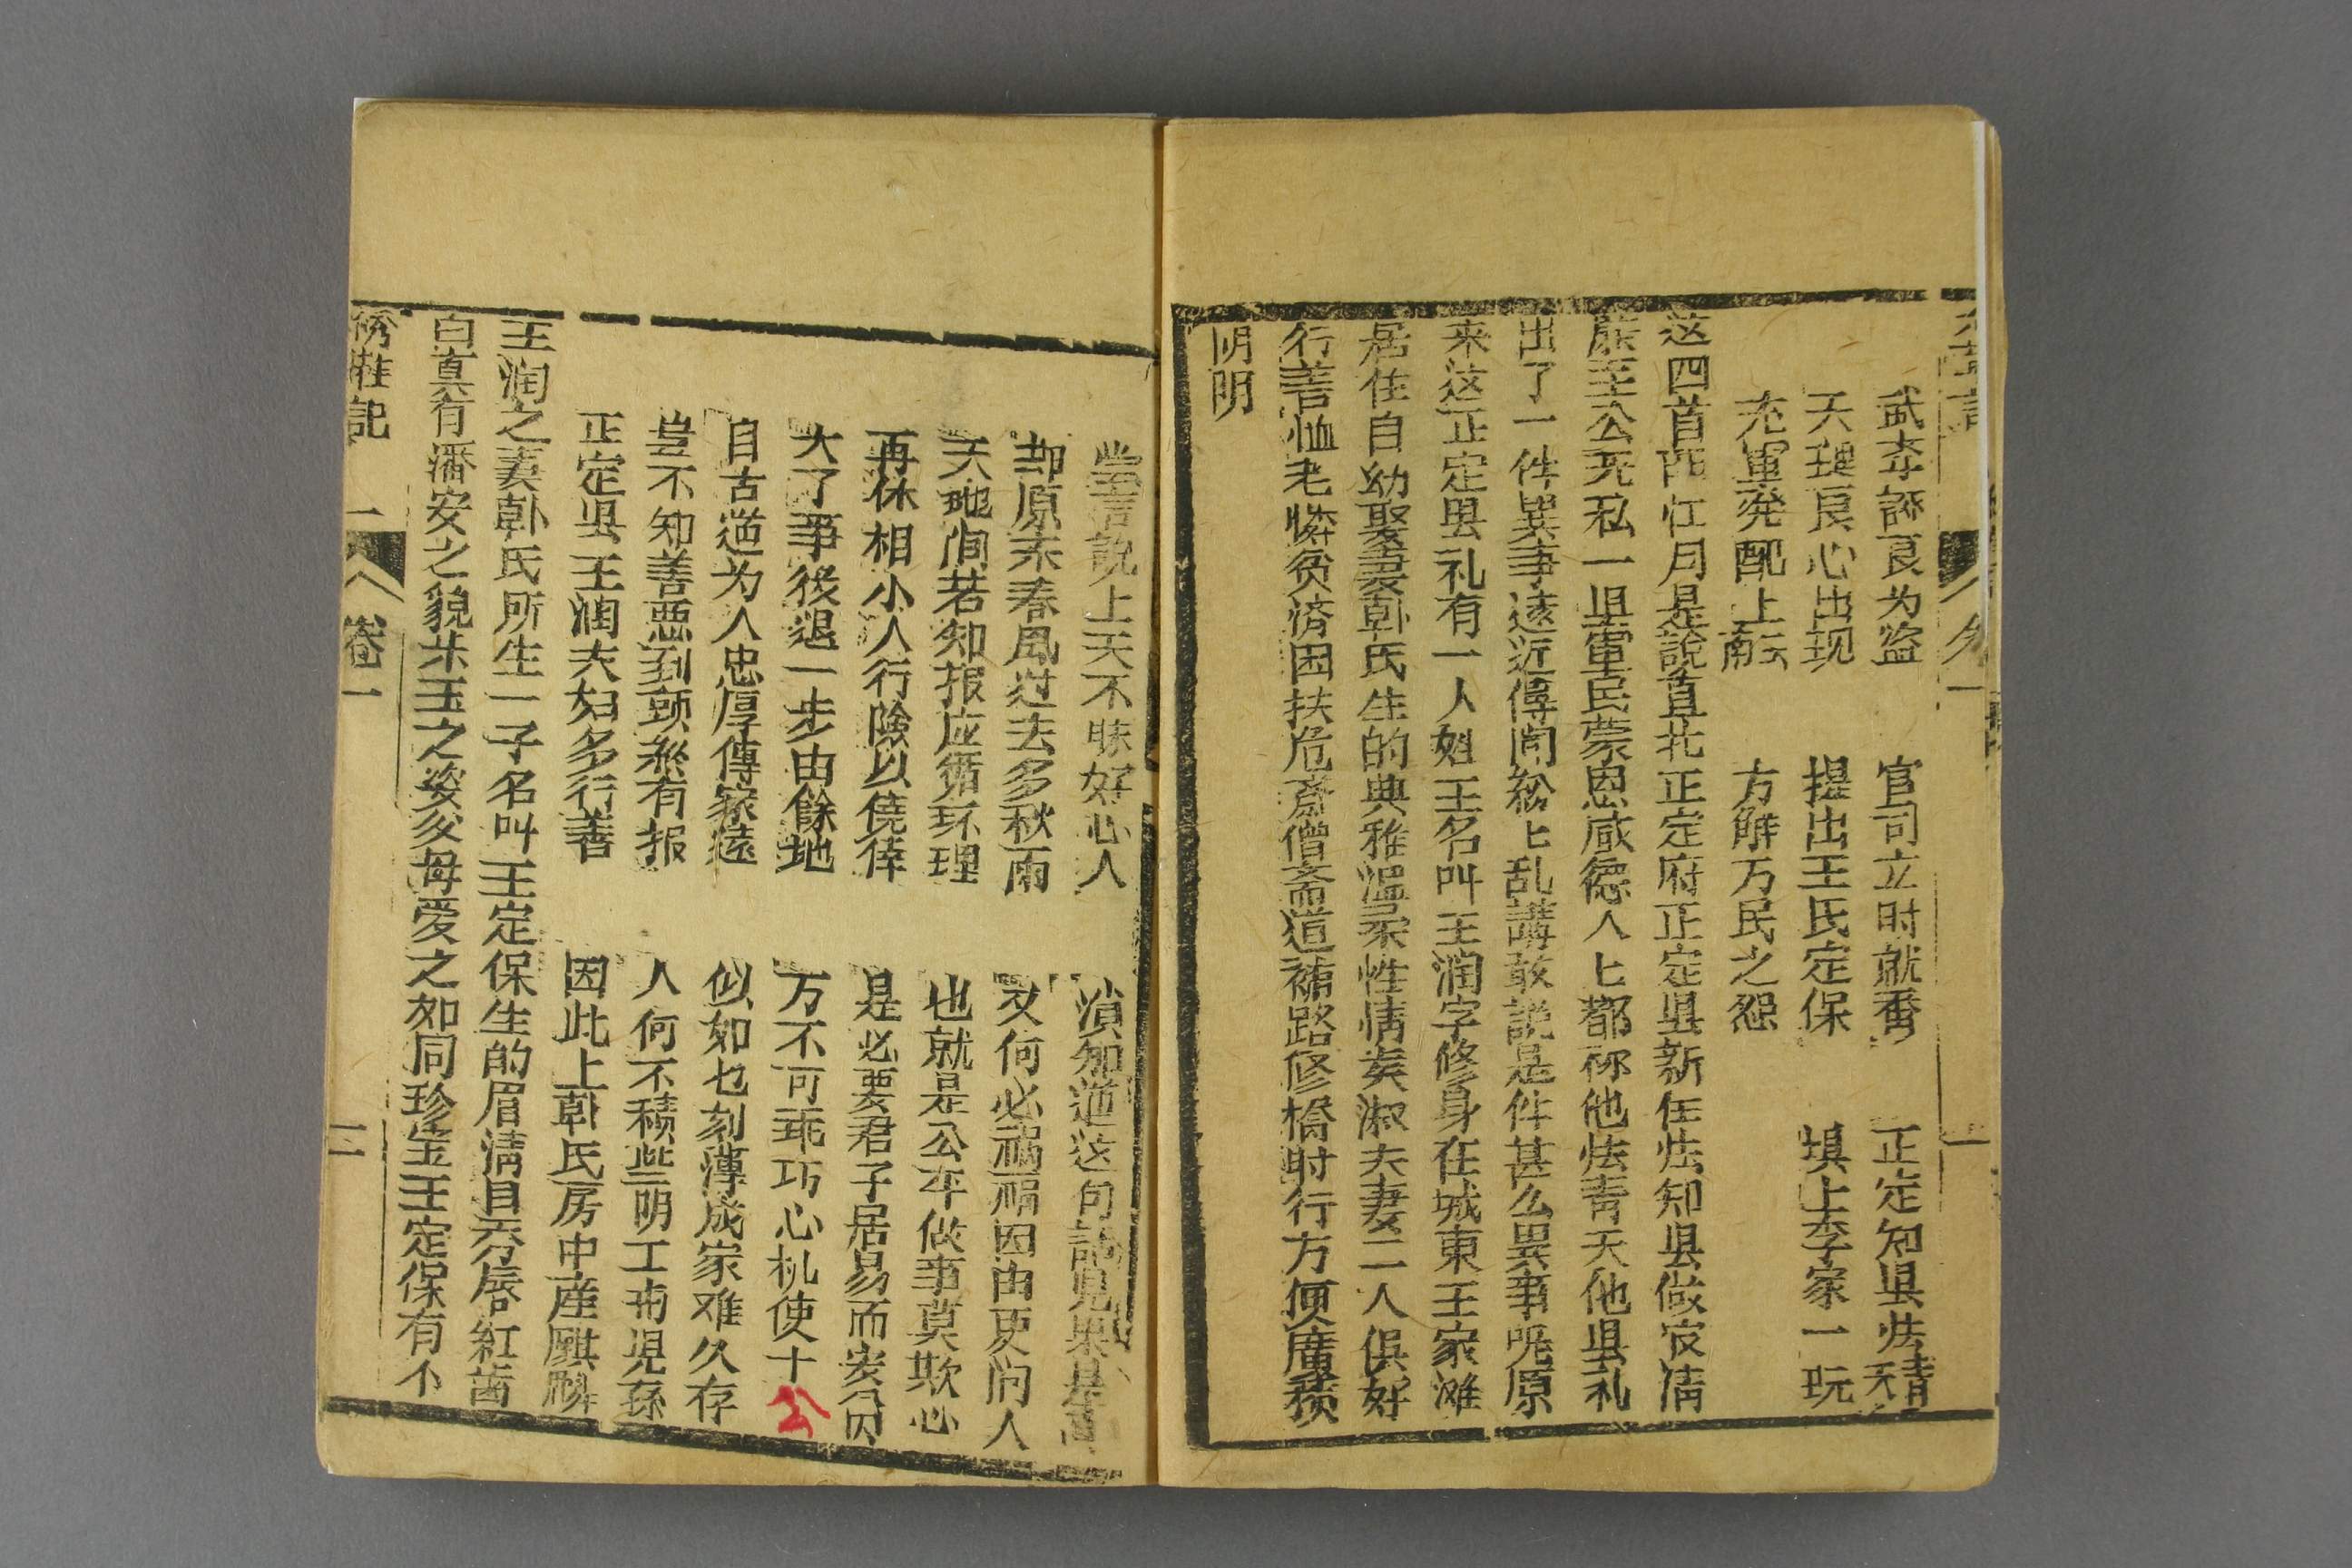 武李誣良为盗 官司立时就番 正定知县法精天
天理良心出现 提出王氏定保 填上李家一玩
充軍発配上云南 方解万民之怨
这四首西江月是說直北正定府正定县新任法知县做官清
廉至公无私一县軍民蒙恩感德人匕都称他法青天他县礼
出了一件異事遠近傳闻紛匕乱講敢説是件甚么異事呢原
来这正定县礼有一人姓王名叫王润字修身在城東王家滩
居住自幼娶妻韩氏生的典雅温柔性情矣淑夫妻二人俱好
行善恤老憐贫济困扶危斎僧斎道補路修橋时行方便廣積
阴明
常言說上天不昧好心人 須知道这句話兒果是真
却原来春風过去多秋雨 又何必祸福因由更问人
天地间若知报应循环理 也就是公平做事莫欺心
再休相小人行険以僥倖 是必要君子居易而安分
大了事後退一步由餘地 万不可乖巧心机使十公
自古道为人忠厚傳家遠 似如乜刻薄成家难久存
豈不知善悪到頭終有报 人何不積些阴工補児孫
正定县王润夫妇多行善 因此上韩氏房中産麒麟
王润之妻韩氏所生一子名叫王定保生的眉清目秀唇紅齒
白真有潘安之貌宋玉之姿父母爱之如同珍宝王定保有个
绣鞋記 一 卷一 二